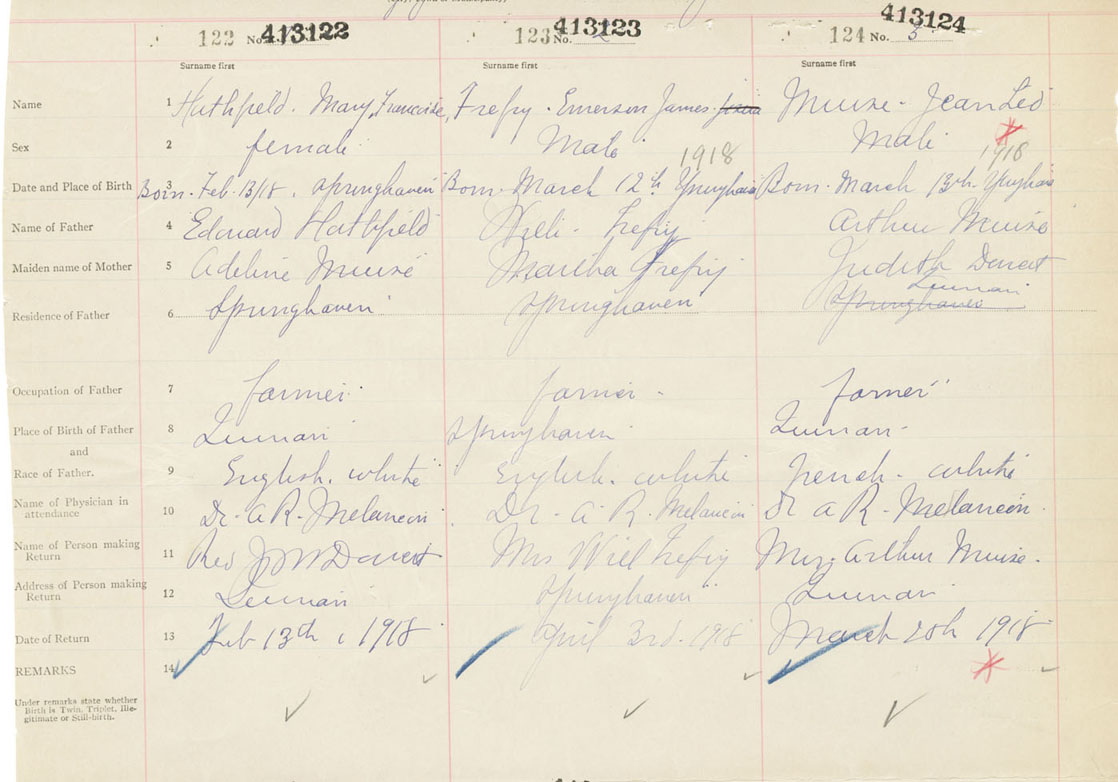 413122 413123 413124
122 No. 123 No. 2 124 No. 3
Surname first Surname first Surname first
Name 1 Hathfield. Mary, Francoise, Trefry. Emerson James Muise. Jean Léo
Sex 2 female Male Male
1918 1918
Date and Place of Birth 3 Born. Feb. 13/18. Springhaven Born. March 12th Springhaven Born. March 13th. Springhaven
Name of Father 4 Edouard Hathfield Willi. Trefry Arthur Muise
Maiden name of Mother 5 Adeline Muise Martha Trefry Judith Doucet
Quinan
Residence of Father 6 Springhaven Springhaven Springhaven
Occupation of Father 7 farmer farmer farmer
Place of Birth of Father 8 Quinan Springhaven Quinan
and
Race of Father. 9 English. white English. white French. white
Name of Physician in
attendance 10 Dr. A R. Melancon Dr. A. R. Melancon Dr A R. Melancon.
Name of Person making
Return 11 Rev Doucet Mrs Will Trefry Mrs Arthur Muise.
Address of Person making
Return 12 Quinan Springhaven Quinan
Date of Return 13 Feb 13th, 1918 April 3rd. 1918 March 20th 1918
REMARKS 14
Under remarks state whether
Birth is Twin, Triplet, Ille-
gitimate or Still-birth.